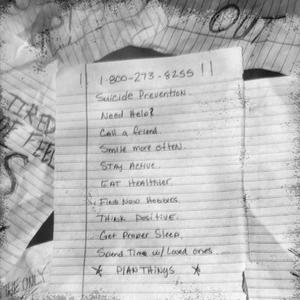 OUT
!! 1-800-273-8255 !!
Suicide Prevention.
Need Help?
Call a friend.
Smile more often.
Stay Active.
Eat Healthier.
Find New Hobbies.
Think Positive.
Get Proper Sleep.
Spend Time w/ Loved ones.
* PLAN THINGS *
THE ONLY